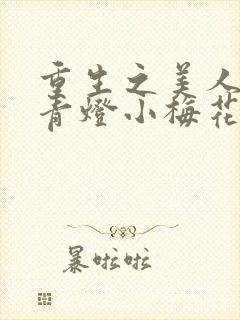 重生之美人
青燈小梅花
暴啦啦